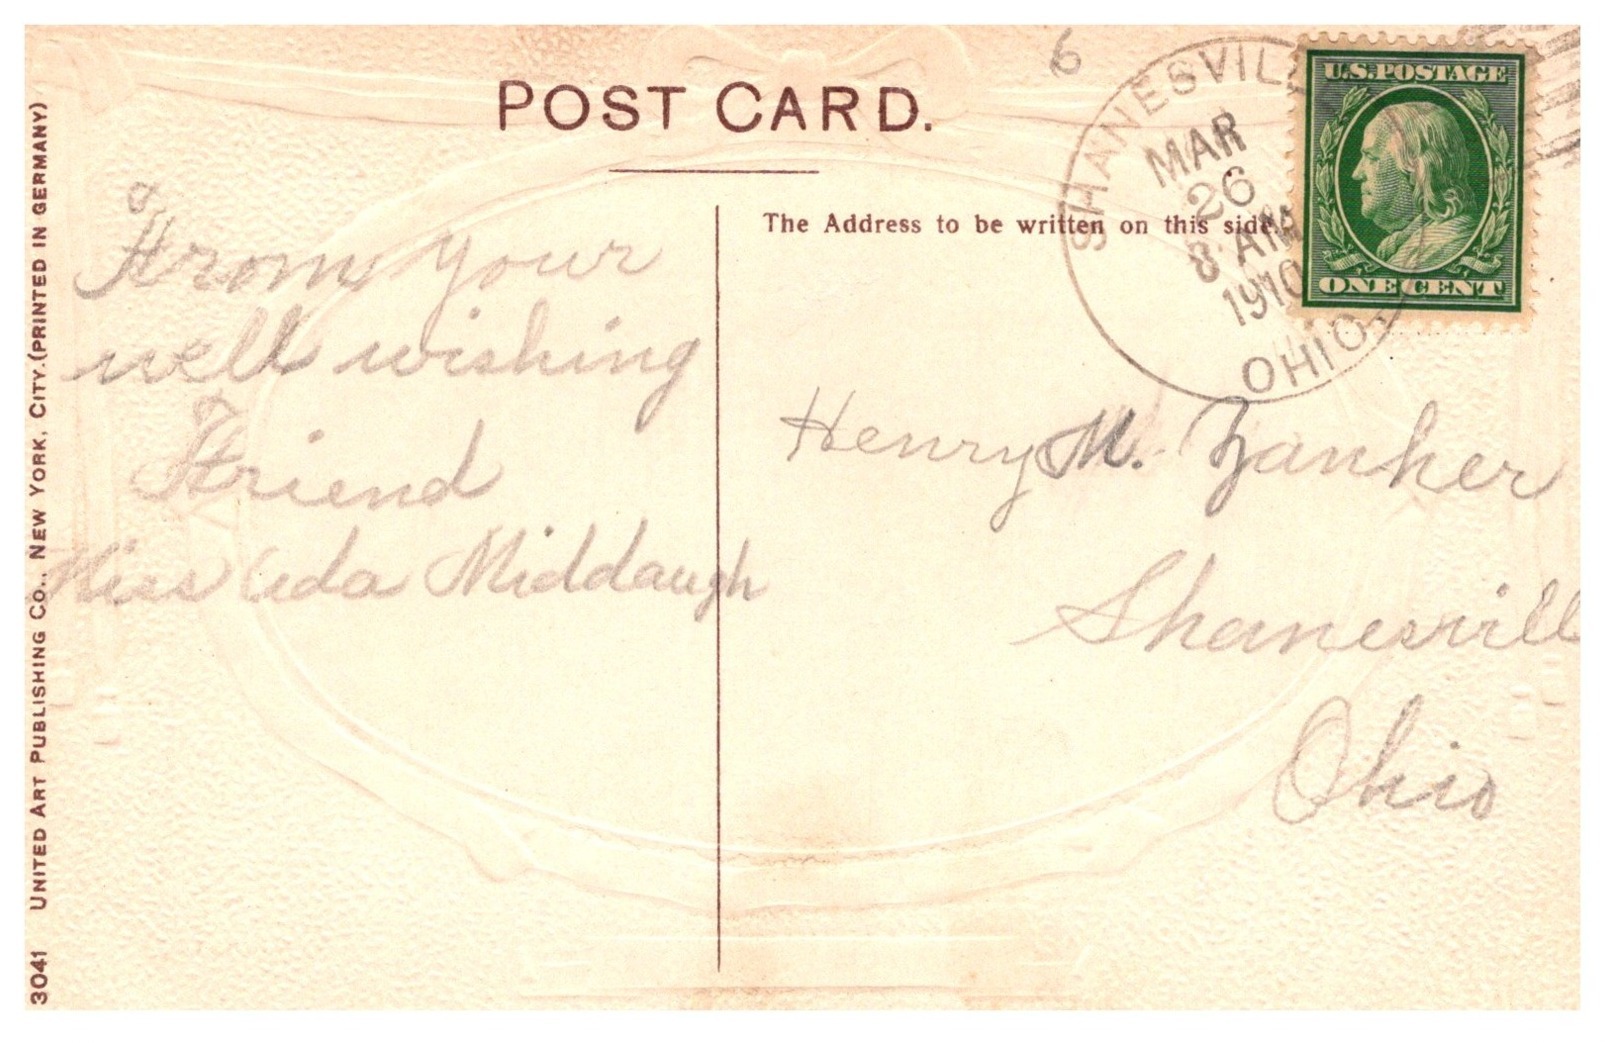 POST CARD.
6
SHANESVILL
MAR
26
8 AM
1910
OHIO.
U.S. POSTAGE
ONE CENT
The Address to be written on this side.
From your
well wishing
Friend
Miss Ada Middaugh
Henry M. Zanher
Shanesvill
Ohio
3041 UNITED ART PUBLISHING CO., NEW YORK, CITY. (PRINTED IN GERMANY)